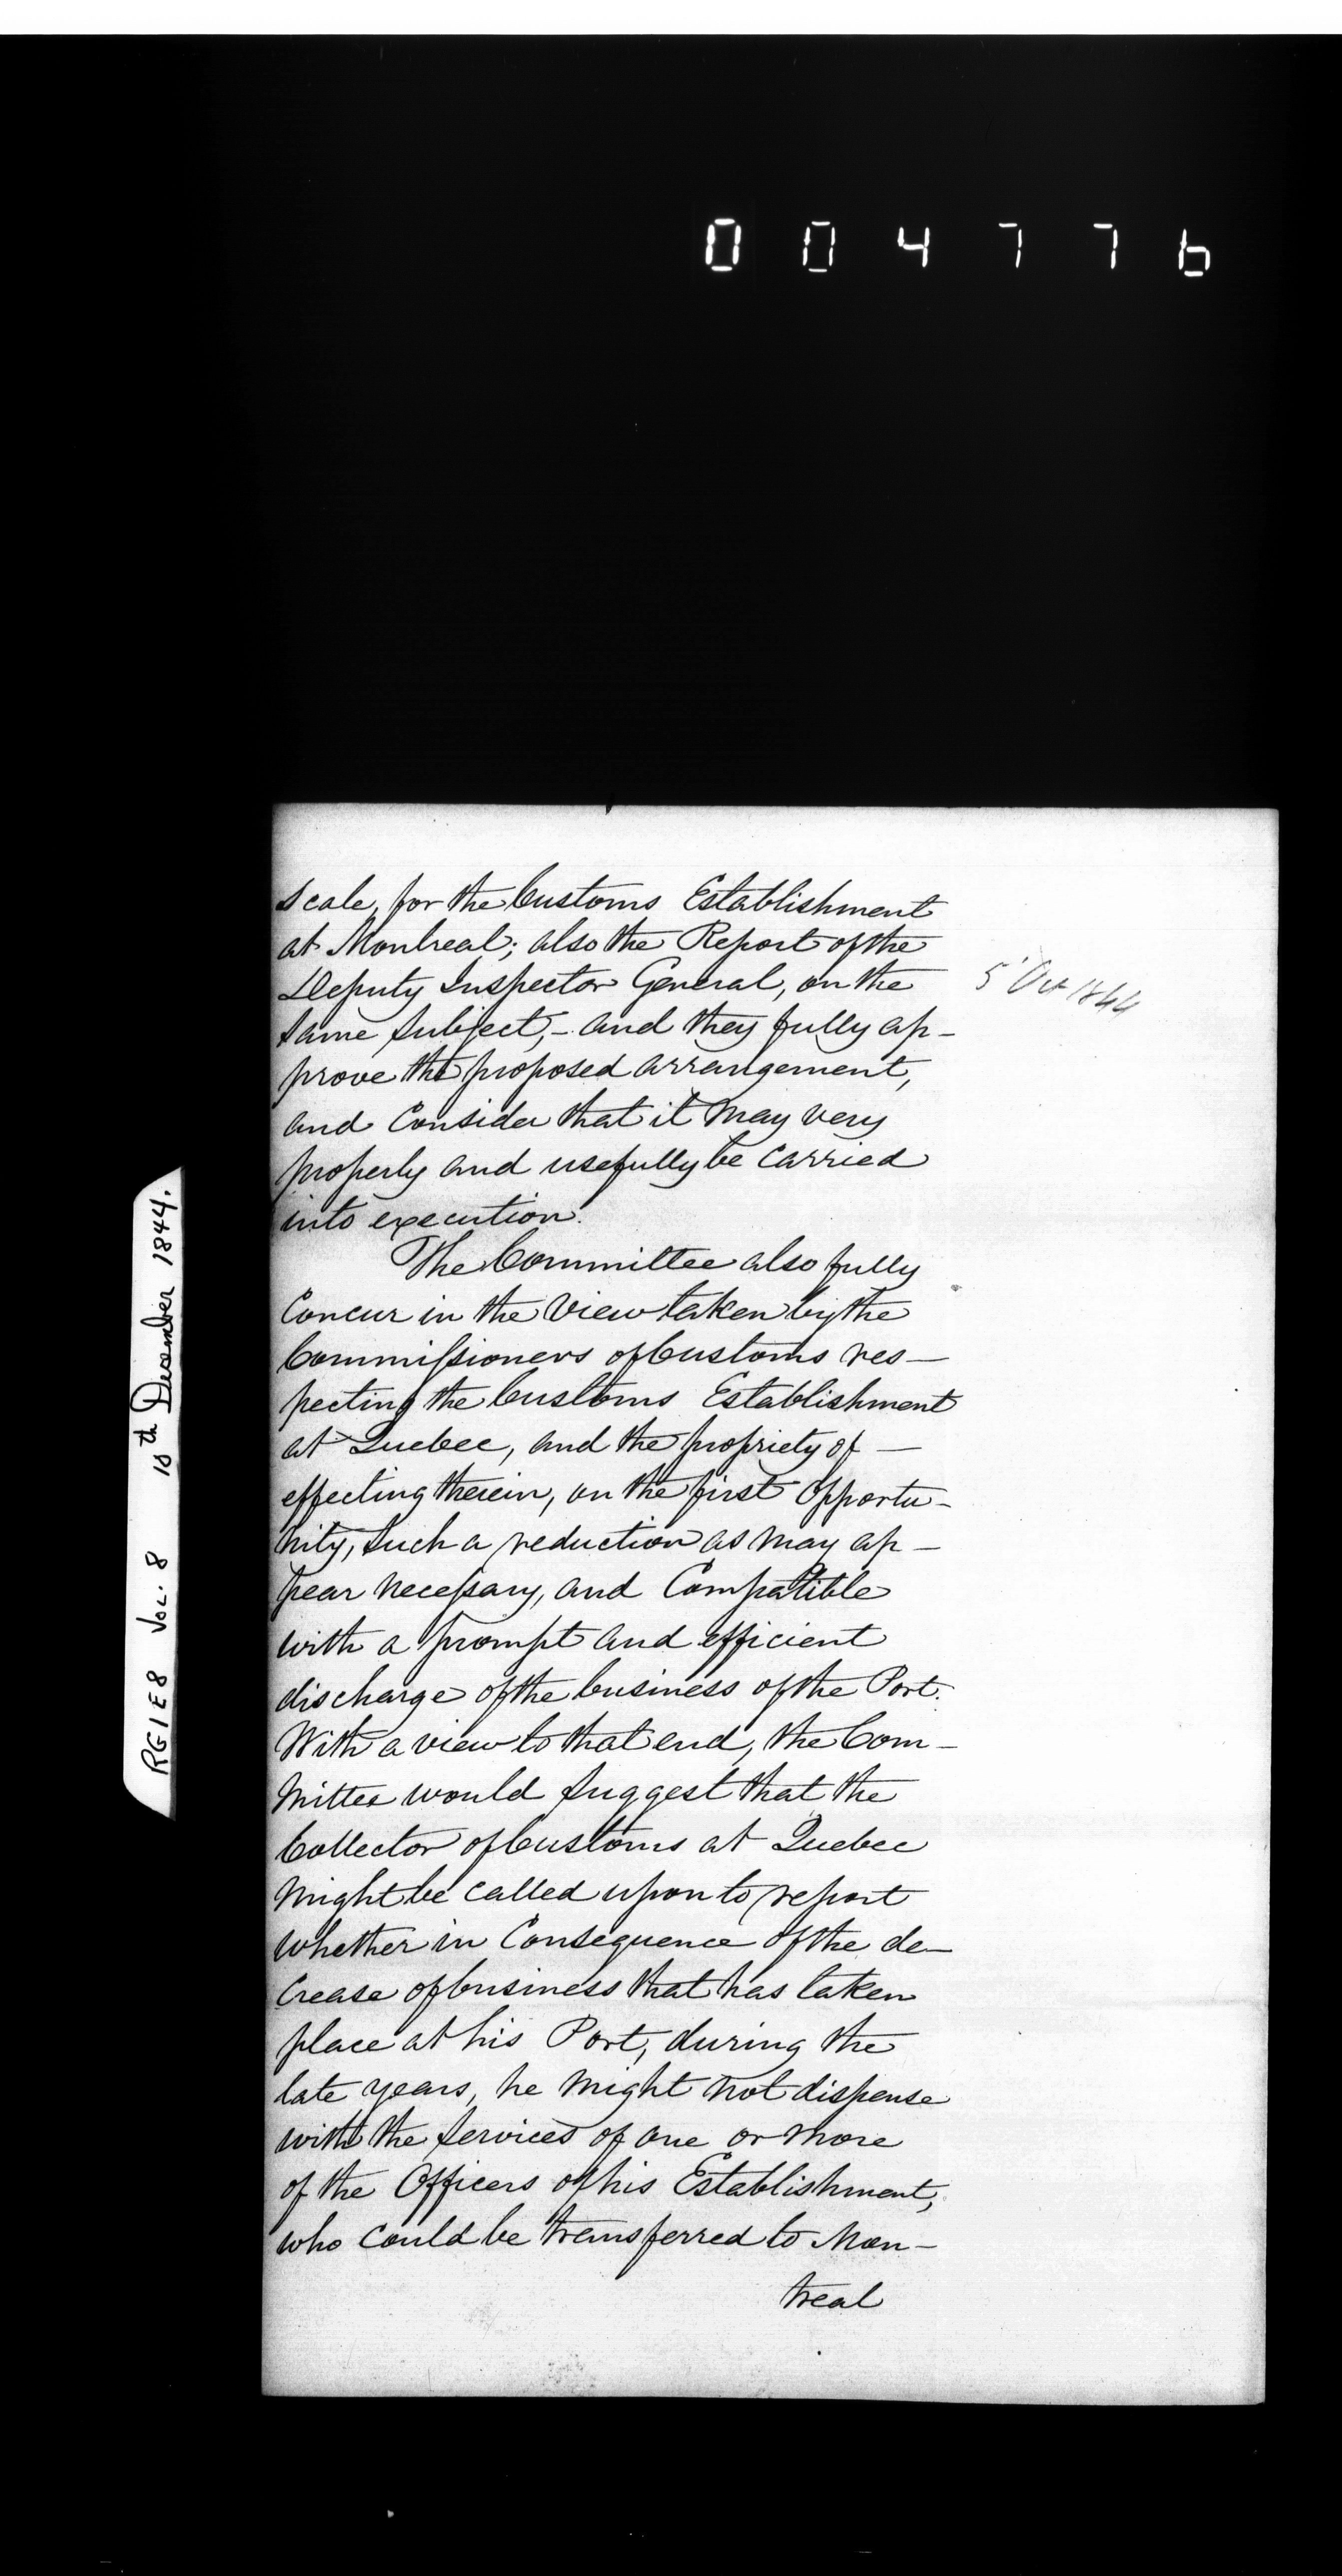 004776
scale, for the Customs Establishment
at Montreal; also the Report of the
Deputy Inspector General, on the
5 Oct 1844
same subject, – and they fully ap–
prove the proposed arrangement,
and Consider that it may very
properly and usefully be carried
into execution.
The Committee also fully
Concur in the view taken by the
Commissioners of Customs res–
pecting the Customs Establishment
at Quebec, and the propriety of –
effecting therein, on the first Opportu–
nity, such a reduction as may ap–
pear necessary, and Compatible
with a prompt and efficient
discharge of the business of the Port.
With a view to that end, the Com–
mittee would suggest that the
Collector of Customs at Quebec
might be called upon to report
whether in Consequence of the de–
crease of business that has taken
place at his Port, during the
late years, he might not dispense
with the services of one or more
of the Officers of his Establishment,
who could be transferred to Mon–
treal
RG1E8 VOL. 8 18th December 1844.